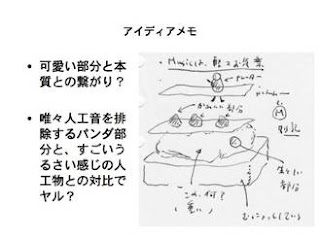 アイディアメモ
• 可愛い部分と本
質との繋がり？
• 唯々人工音を排
除するパンダ部
分と、すごいう
るさい感じの人
工物との対比で
ヤル？
Musicは、
かわいい部分
M
これ、何？
（重い）
部分